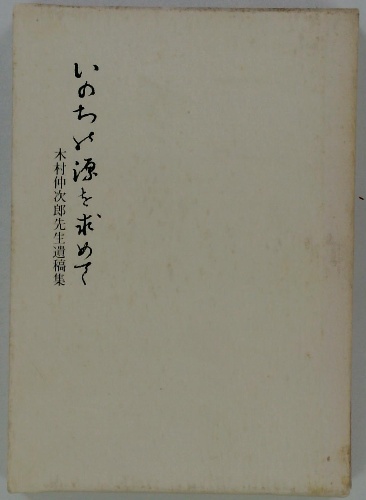 いのちの源を求めて
木村仲次郎先生遺稿集